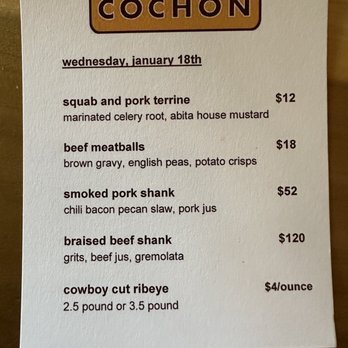 COCHON
wednesday, january 18th
squab and pork terrine $12
marinated celery root, abita house mustard
beef meatballs $18
brown gravy, english peas, potato crisps
smoked pork shank $52
chili bacon pecan slaw, pork jus
braised beef shank $120
grits, beef jus, gremolata
cowboy cut ribeye $4/ounce
2.5 pound or 3.5 pound